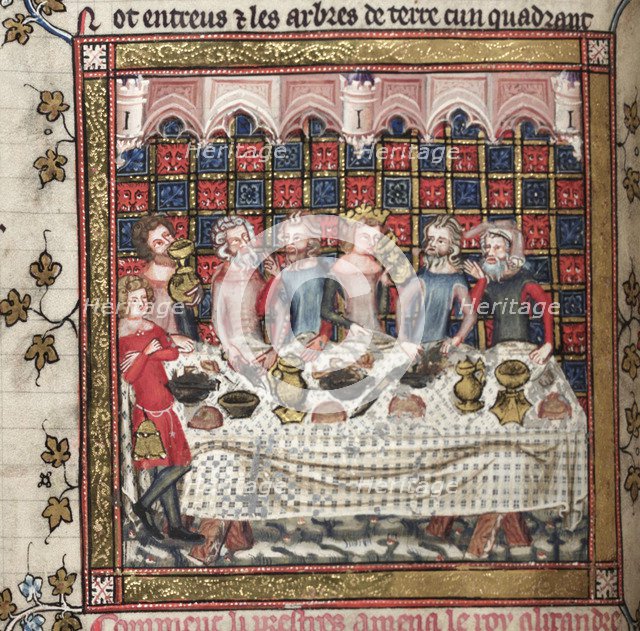 ot entreus & les arbres de terre cun quadrant
Heritage Heritage
Heritage Heritage Heritage
Heritage Heritage
Comment li prestres amena le roy alixandre